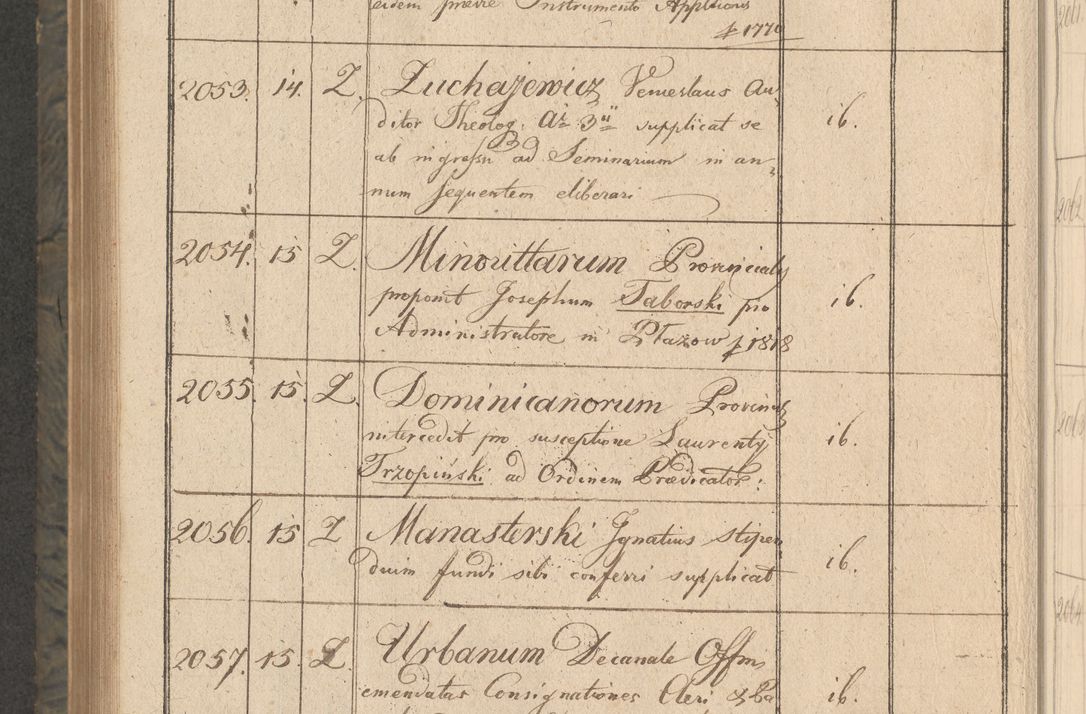 eidem prævie Instrumento Appltionis
p 1770
2053. 14. Z. Łuchajewicz Venceslaus Au-
ditor Theolog. Ai 3ii supplicat se ib.
ab ingressu ad Seminarium in an-
num sequentem eliberari
2054. 15 Z. Minorittarum Provincialis
proponit Josephum Taborski pro ib.
Administratore in Płazow p 1818
2055. 15. Z. Dominicanorum Provincial
intercedit pro susceptione Laurentÿ ib.
Trzopiński ad Ordinem Prædicator:
2056. 15 Z Manasterski Ignatius stipen
dium fundi sibi conferri supplicat ib.
2057. 15. Z. Urbanum Decanale Offm
emendatas Consignationes Cleri & Pa ib.